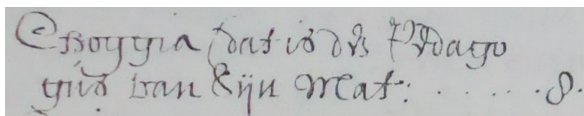 Choggia dat is des Pedago
gus van Zijn Mat: . . . . . 8.